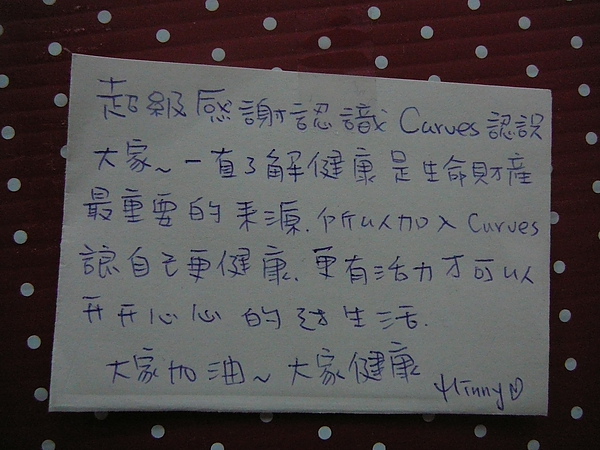 超級感謝認識 Curves 認識
大家~一直了解健康是生命財產
最重要的來源.所以加入 Curves
讓自己更健康.更有活力才可以
開開心心的過生活.
大家加油~大家健康
Hinny♡